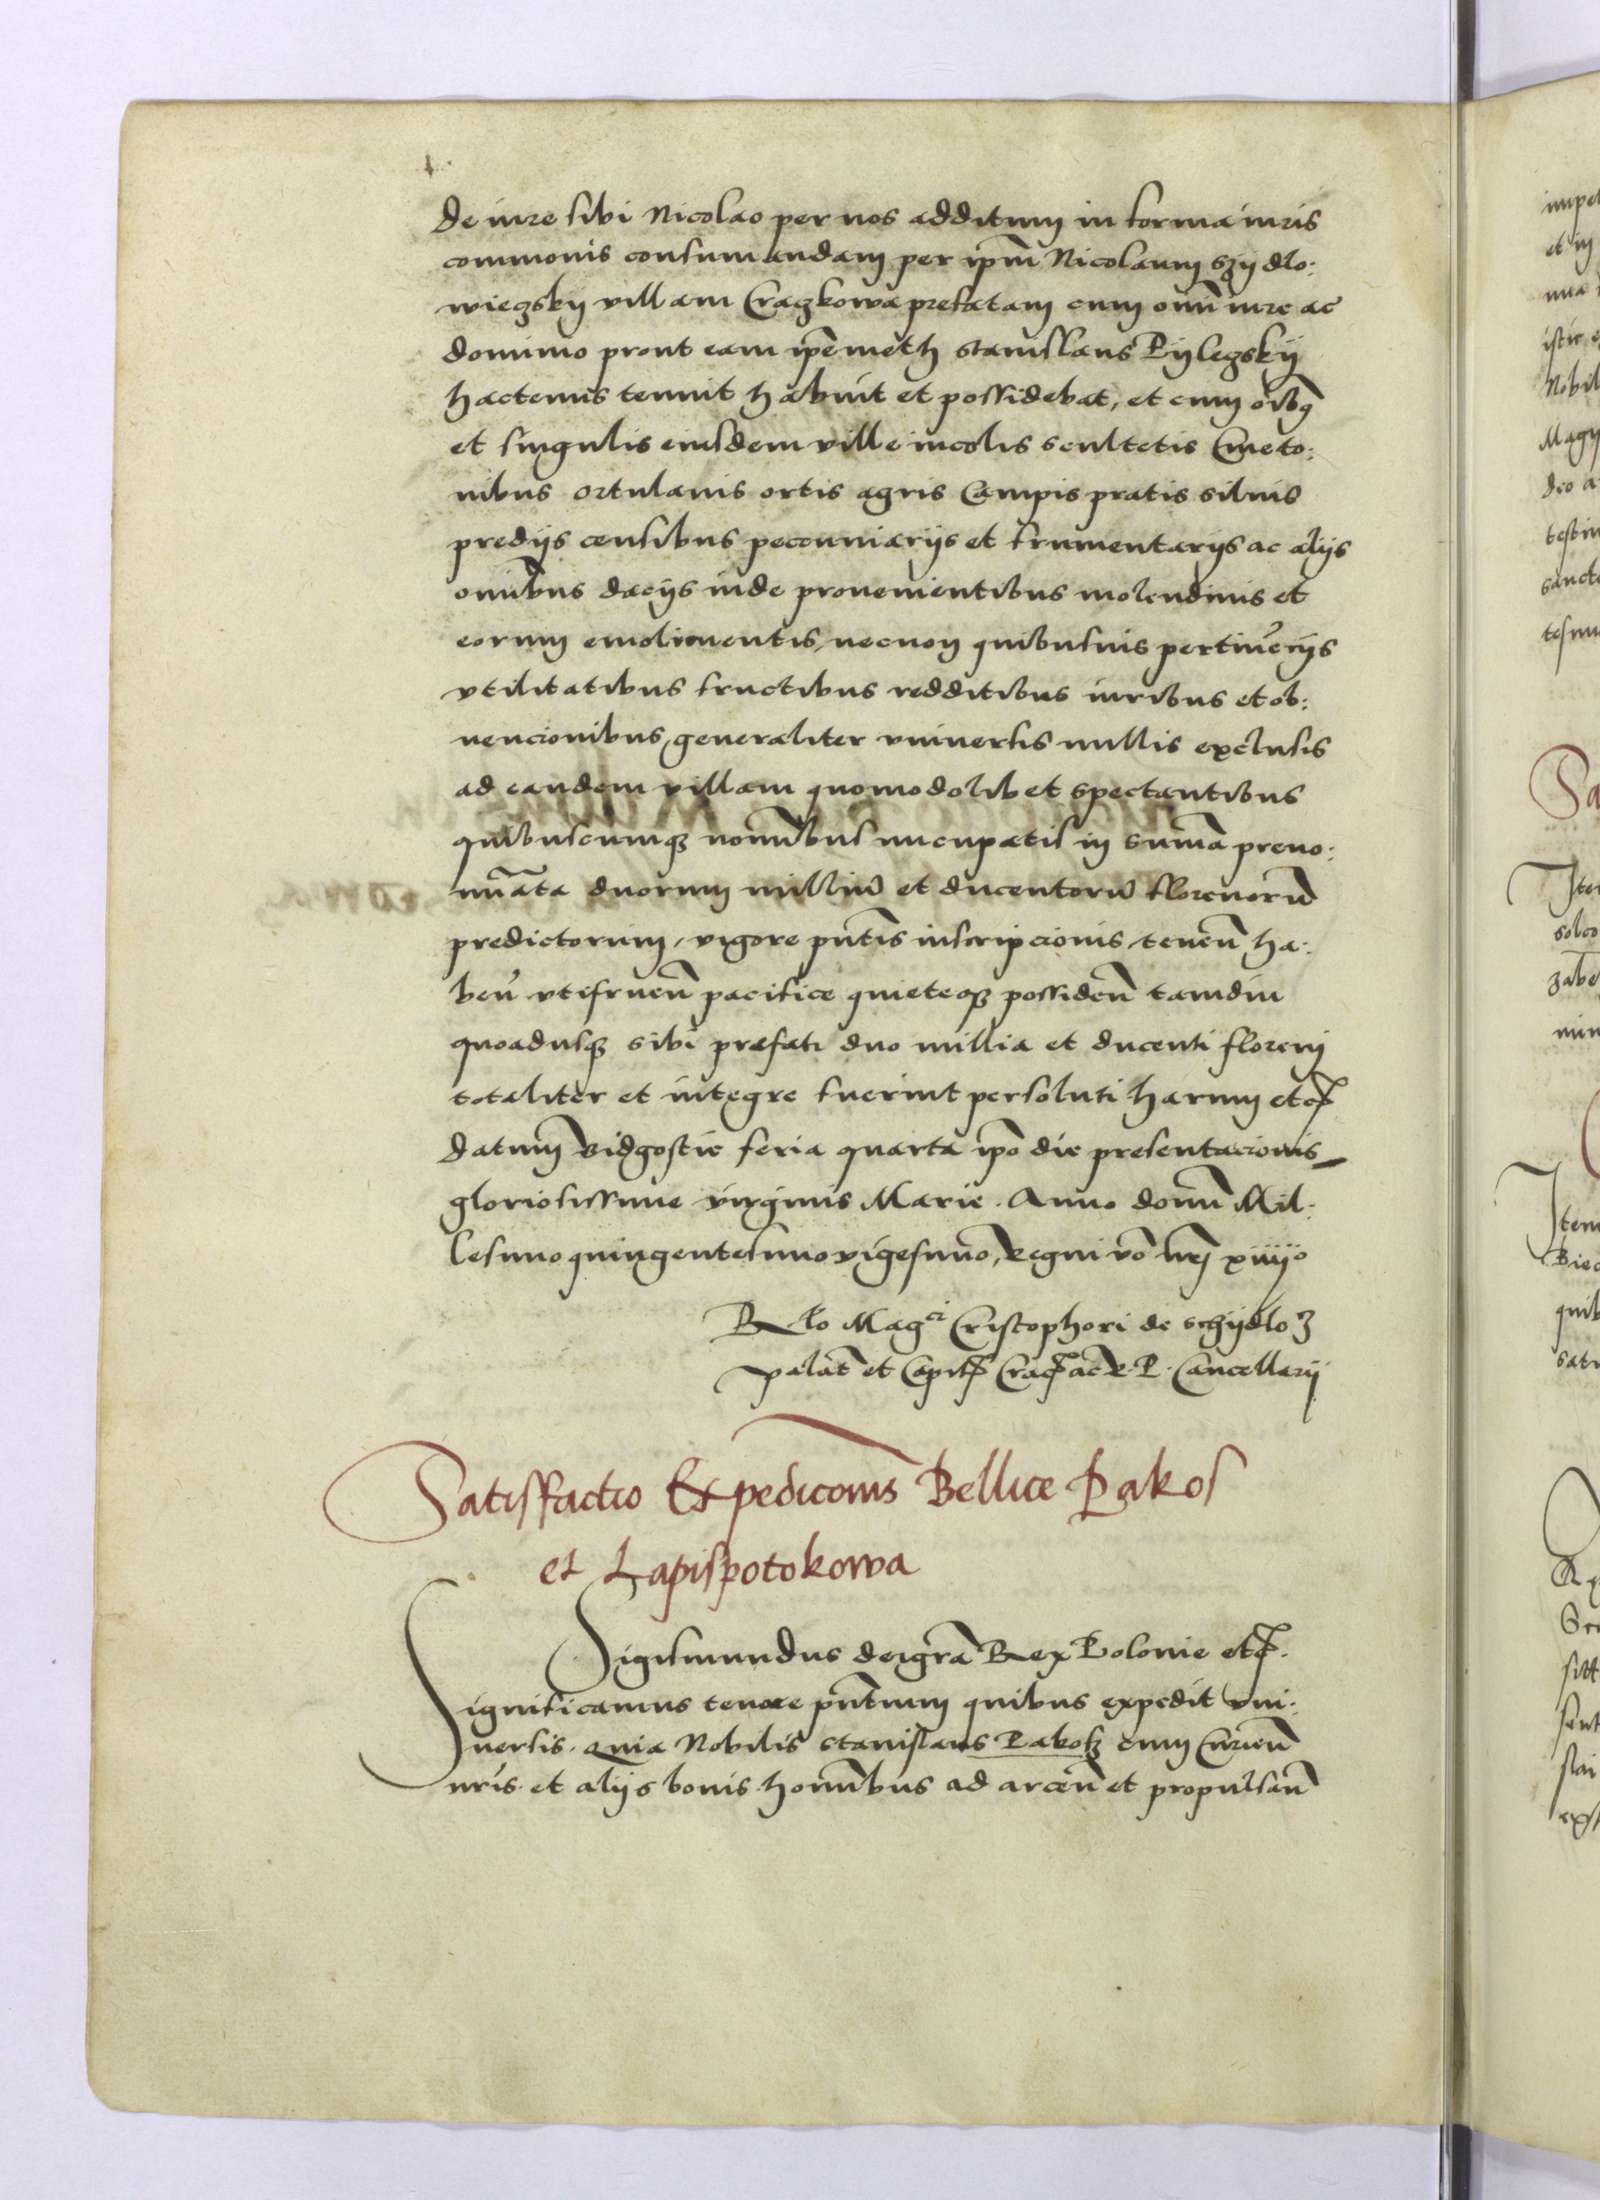 de iure sibi Nicolao per nos additum in forma iuris
commonis consumandam per ip̄m Nicolaum Szydlo:
wieczsky villam Craczkowa prefatam cum om̄i iure ac
dominio prout eam ip̄emeth Stanislaus Pylegsky
hactenus tenuit habuit et possidebat, et cum oībq
et singulis eiusdem ville incolis scultetis Cmeto:
nibus ortulanis ortis agris Campis pratis siluis
predijs censibus peconniarijs et frumentarijs ac alijs
om̄ibus dacijs inde prouenientibus molendinis et
eorum emolimentis, necnon quibusuis pertinēcijs
vtilitatibus fructibus redditibus iuribus et ob:
uencionibus, generaliter vniuersis nullis exclusis
ad eandem villam quomodolibet spectantibus
quibuscumqз nomībus nucupatis in sum̄a preno:
mīata duorum milliū et ducentorū florenorū
predictorum, vigore pn̄tis inscripcionis teneñ ha:
beñ vtifrueñ pacifice quieteqз possideñ tamdiu
quoadusqз sibi prefati duo millia et ducenti floreni
totaliter et integre fuerint persoluti harum etc̄
datum Bidgostie feria quarta ip̄o die presentacionis
gloriosissime virginis Marie. Anno domī Mil:
lesimo quingentesimo vigesimo, Regni vō nr̄j xiiijo
Rlo Magci Cristophori de Schydloз
palat̄ et Capit̄ Crac̄ ac R. P. Cancellarij
Satisfactio Expedicōnis Bellice Pakos
et Lapispotokowa
Sigismundus dei gr̄a Rex Polonie etc̄.
Significamus tenore pn̄tium quibus expedit vni:
uersis. Quia Nobilis Stanislaus Pakosз cum Curieñ
nr̄is. et alijs bonis homībus ad arceñ et propulsañ